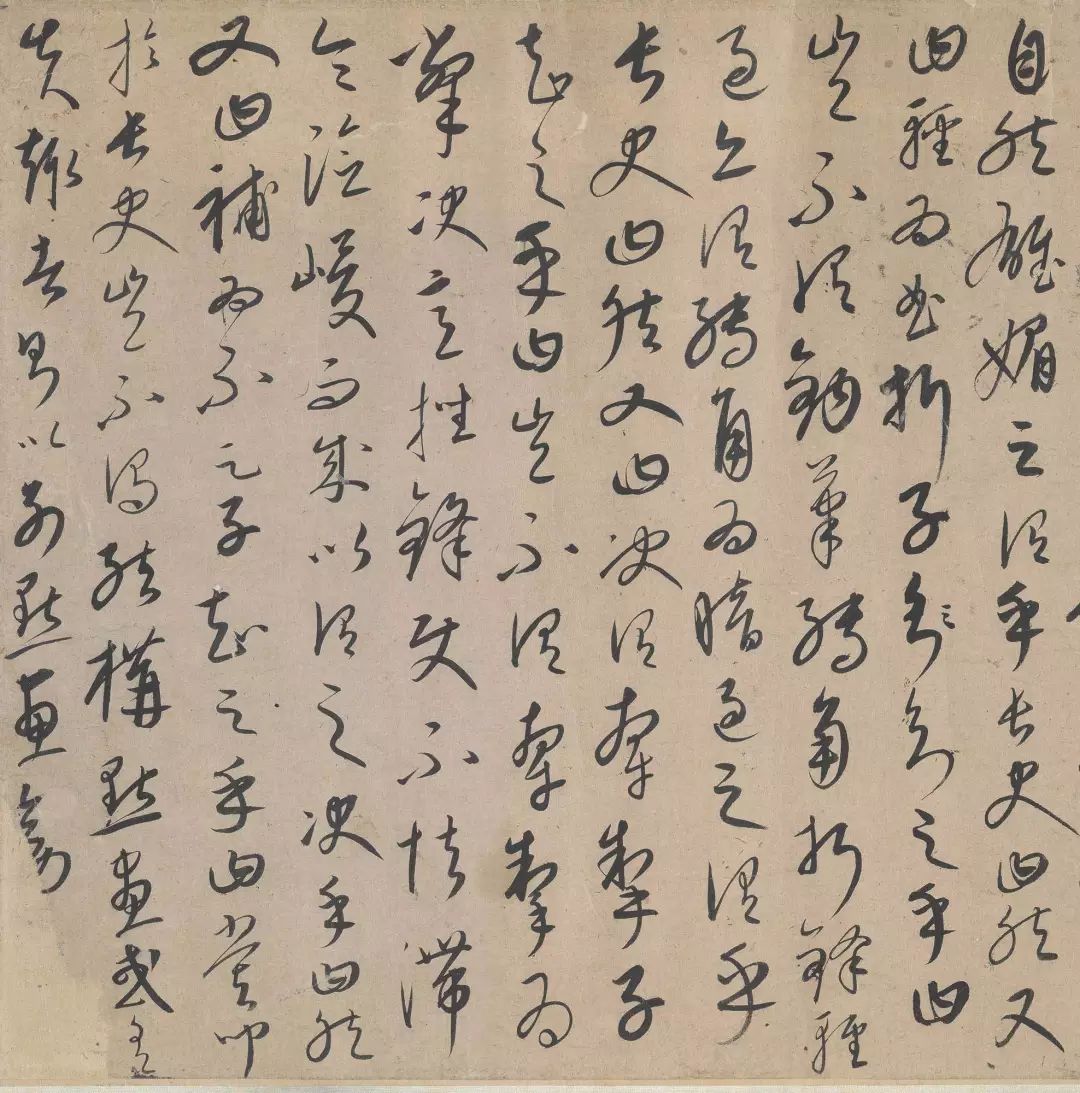 自然雄媚之謂乎長史曰然又
曰輕為曲折子知之乎曰
豈不謂鉤筆轉角折鋒輕
過亦謂轉角為暗過之謂乎
長史曰然又曰決謂牽掣子
知之乎曰豈不謂牽掣為
撆決意挫鋒使不怯滯
令險峻而成以謂之決乎曰然
又曰補為不足子知之乎曰嘗聞
於長史豈不謂結構點畫或有
失趣者則以別點畫旁